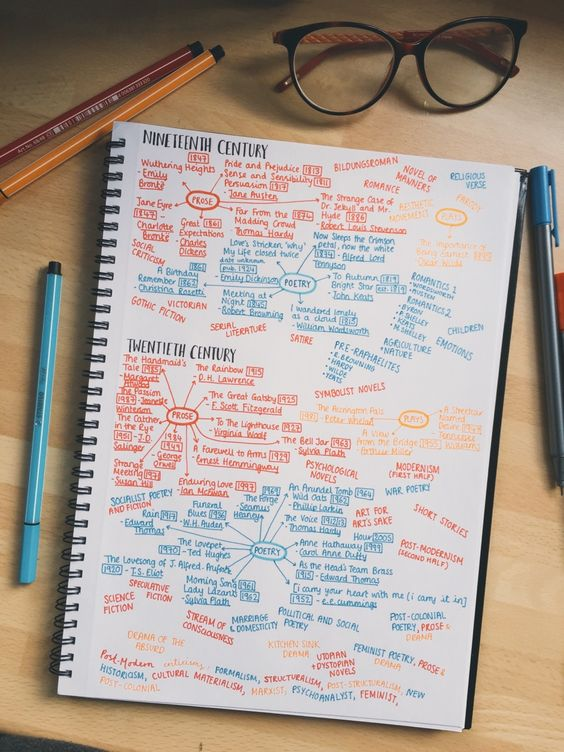 NINETEENTH CENTURY
1847
Wuthering Heights
- Emily
Brontë
Jane Eyre
1847
- Charlotte
Brontë
PROSE
Pride and Prejudice 1813
Sense and Sensibility 1811
Persuasion 1817
- Jane Austen
Far From the 1874
Madding Crowd
- Thomas Hardy
Great 1861
Expectations
- Charles
Dickens
The Strange Case of
Dr. Jekyll and Mr.
Hyde 1886
- Robert Louis Stevenson
BILDUNGSROMAN
NOVEL OF
MANNERS
ROMANCE
RELIGIOUS
VERSE
AESTHETIC
MOVEMENT
PARODY
PLAYS
The Importance of
Being Earnest 1895
- Oscar Wilde
SOCIAL
CRITICISM
Love's stricken 'why'
My life closed twice
date unknown
pub. 1924
- Emily Dickinson
Now Sleeps the Crimson
petal, now the white
1894 - Alfred Lord
Tennyson
POETRY
1861
A Birthday
Remember 1862
- Christina Rosetti
Meeting at
Night 1845
- Robert Browning
To Autumn 1819
Bright Star est. 1819
- John Keats
I wandered lonely
as a cloud 1815
- William Wordsworth
ROMANTICS 1
- WORDSWORTH
- AUSTEN
ROMANTICS 2
- BYRON
- P. SHELLEY
- KEATS
- M. SHELLEY
CHILDREN
EMOTIONS
AGRICULTURE
+ NATURE
GOTHIC FICTION
VICTORIAN
SERIAL
LITERATURE
SATIRE
PRE-RAPHAELITES
- R. BROWNING
- HARDY
- WILDE
- YEATS
TWENTIETH CENTURY
The Handmaid's
Tale 1985
- Margaret
Atwood
The Passion
1987 - Jeanette
Winterson
The Catcher
in the Rye
1951 - J.D.
Salinger
Strange
Meeting 1971
- Susan Hill
1984
1949
- George
Orwell
PROSE
The Rainbow 1915
- D. H. Lawrence
The Great Gatsby 1925
- F. Scott Fitzgerald
To The Lighthouse 1927
- Virginia Woolf
The Bell Jar 1963
- Sylvia Plath
A Farewell to Arms 1929
- Ernest Hemmingway
Enduring Love 1997
- Ian McEwan
SYMBOLIST NOVELS
The Accrington Pals
1981 - Peter Whelan
PLAYS
A View
From the Bridge 1955
- Arthur Miller
A Streetcar
Named
Desire 1947
- Tennessee
Williams
PSYCHOLOGICAL
NOVELS
MODERNISM
(FIRST HALF)
WAR POETRY
ART FOR
ART'S SAKE
SHORT STORIES
POST-MODERNISM
(SECOND HALF)
SOCIALIST POETRY
AND FICTION
Rain 1917
- Edward
Thomas
Funeral
Blues 1936
- W. H. Auden
1969
The Forge
- Seamus
Heaney
An Arundel Tomb 1964
Wild Oats 1962
- Phillip Larkin
The Voice 1912/13
- Thomas Hardy
Hour 2005
Anne Hathaway 1999
- Carol Anne Duffy
POETRY
The Lovepet
1970 - Ted Hughes
The Lovesong of J. Alfred. Prufrock
1920 - T.S. Eliot
Morning Song 1961
Lady Lazarus 1962
- Sylvia Plath
As the Head's Team Brass
1915 - Edward Thomas
[i carry your heart with me (i carry it in]
1952 - e.e. cummings
SPECULATIVE
FICTION
SCIENCE
FICTION
STREAM OF
CONSCIOUSNESS
MARRIAGE
& DOMESTICITY
POLITICAL AND SOCIAL
POETRY
POST-COLONIAL
POETRY, PROSE &
DRAMA
DRAMA OF THE
ABSURD
KITCHEN SINK
DRAMA
UTOPIAN
+ DYSTOPIAN
NOVELS
FEMINIST POETRY, PROSE &
DRAMA
Post-Modern criticisms: FORMALISM, STRUCTURALISM, POST-STRUCTURALISM, NEW
HISTORICISM, CULTURAL MATERIALISM, MARXIST, PSYCHOANALYST, FEMINIST,
POST-COLONIAL